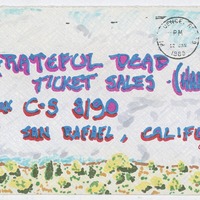 GRATEFUL DEAD
TICKET SALES
C-S 8190
SAN RAFAEL, CALIF
PM
1983